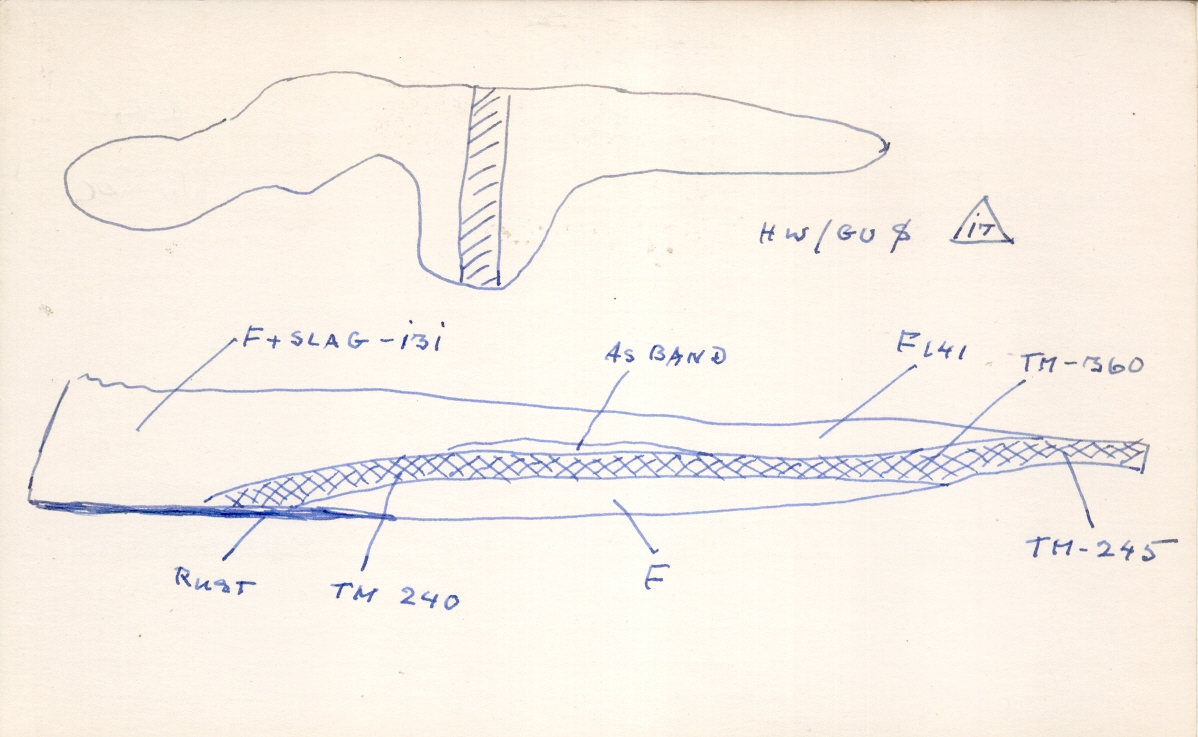 HW/GU $ iT
F+SLAG-131
As BAND
F141
TM-360
RUST
TM 240
F
TM-245